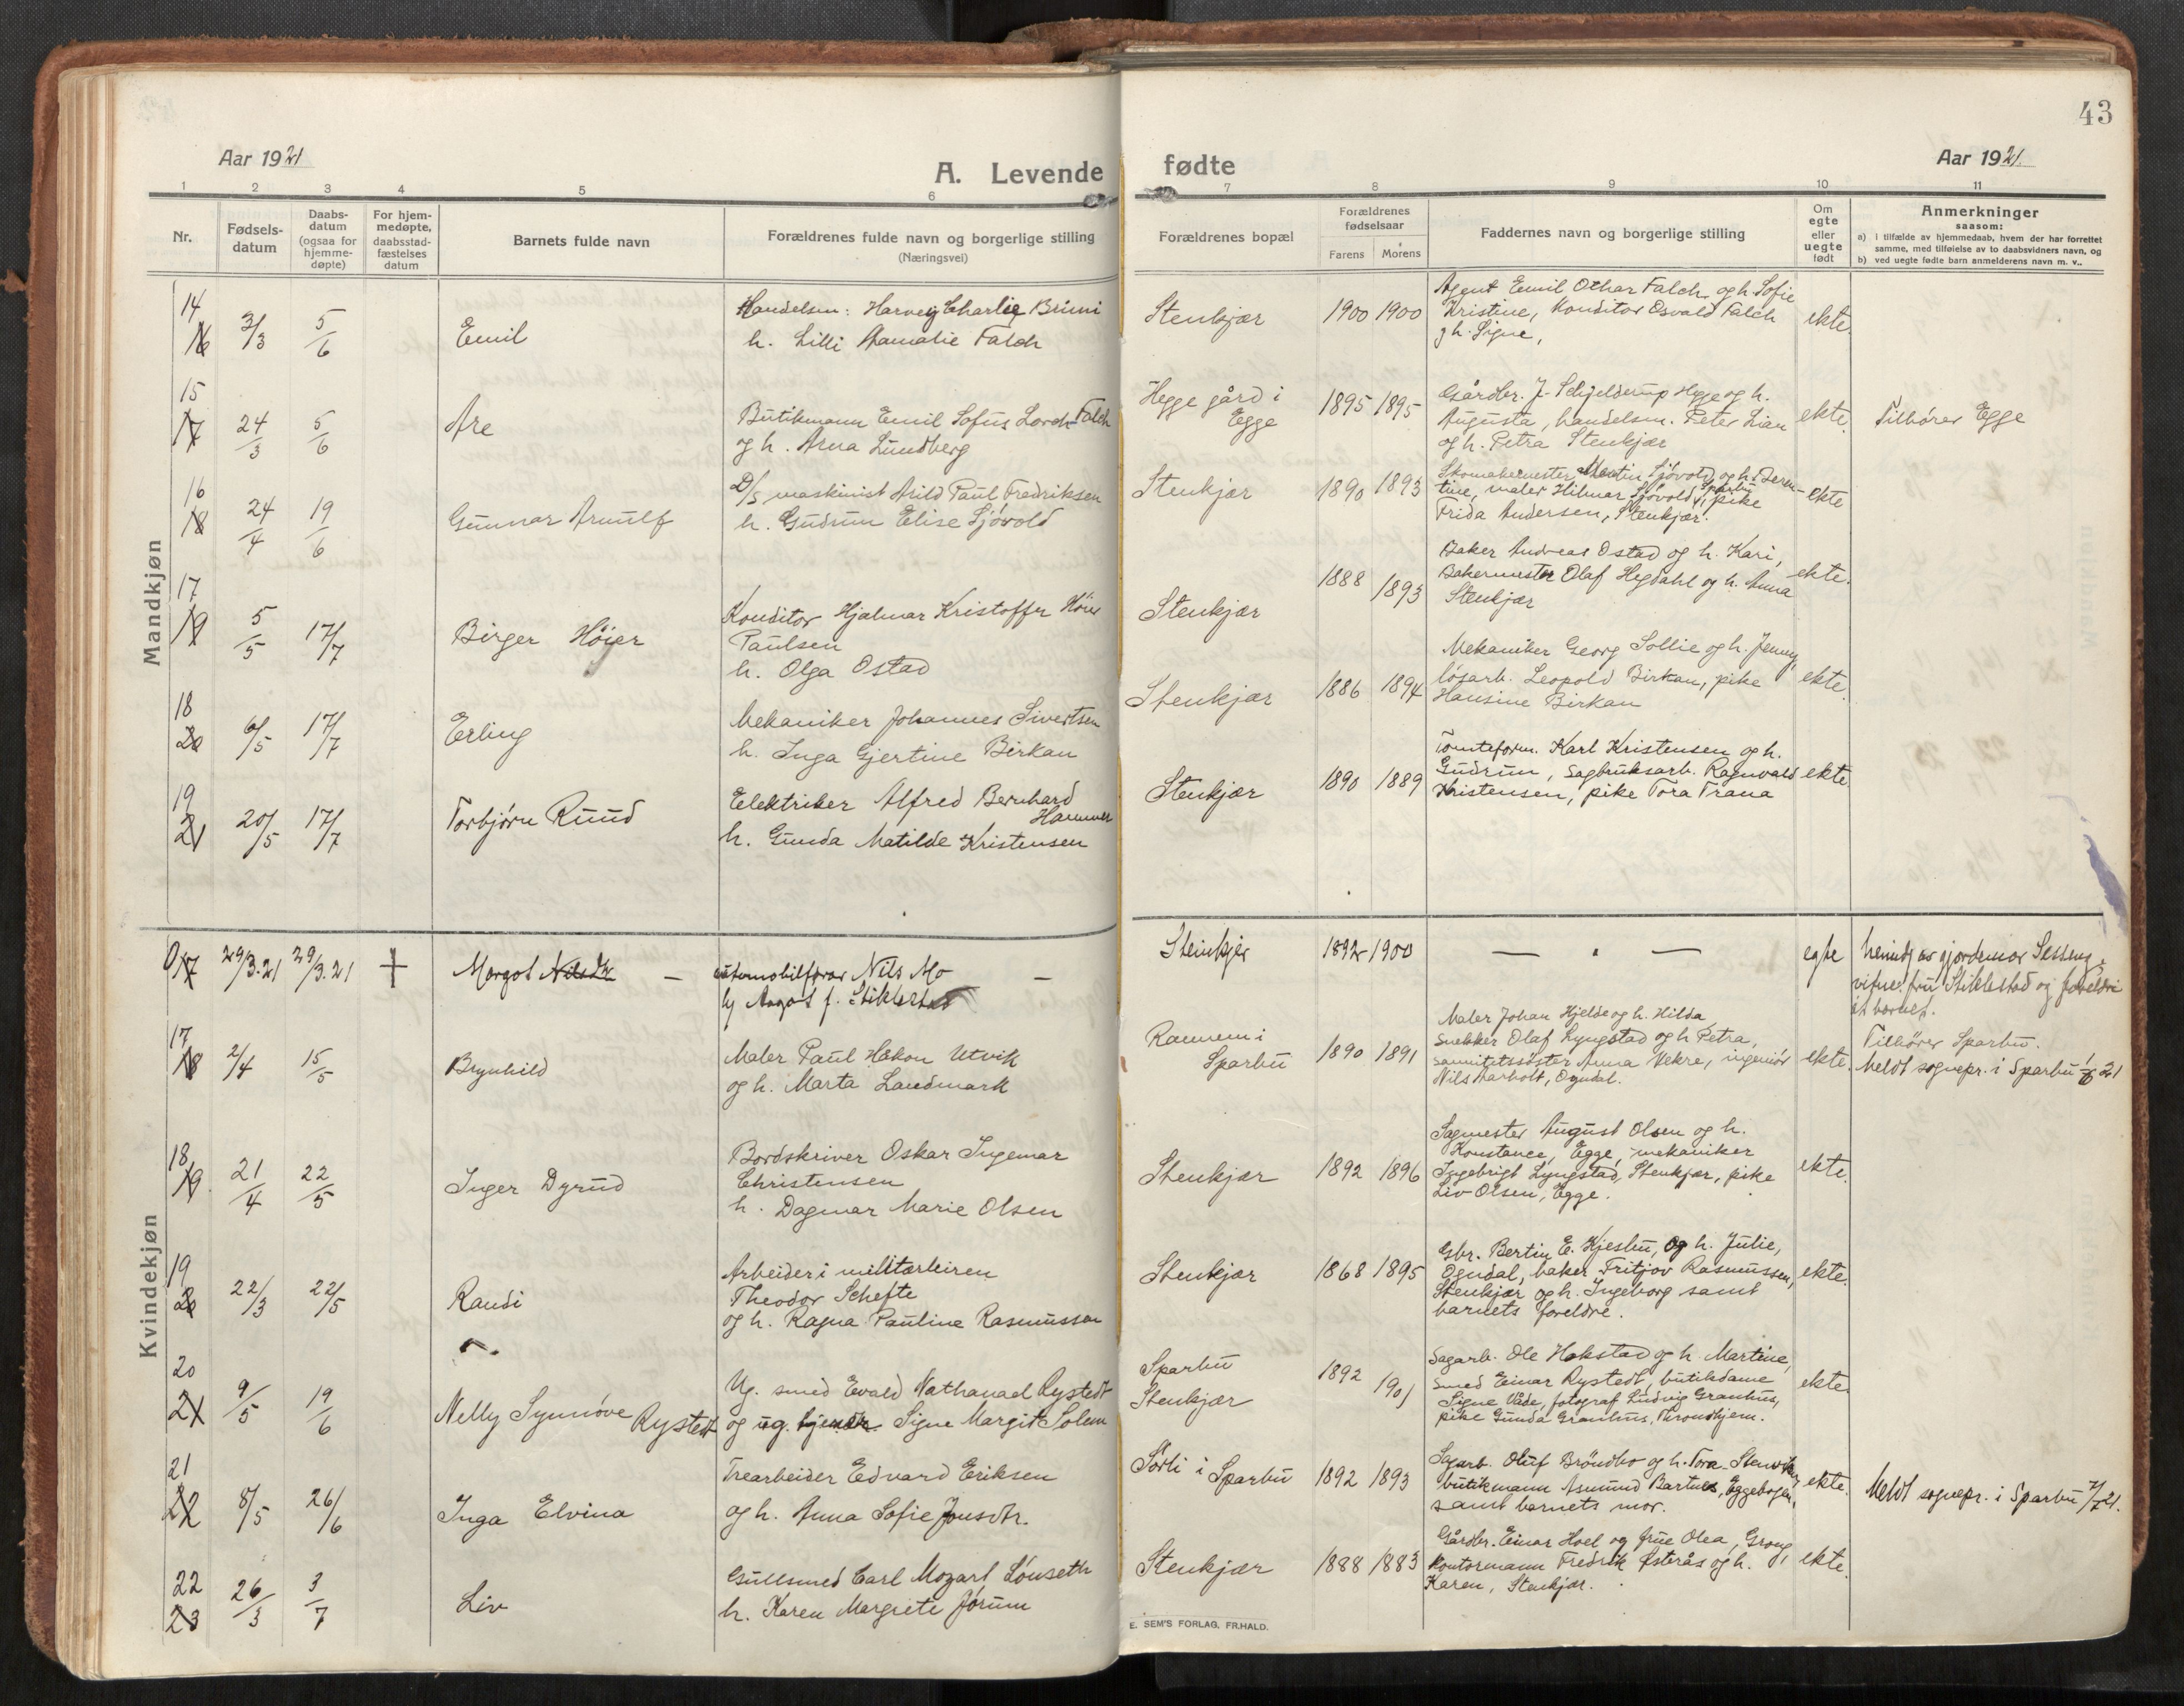 43
Aar 1921
A. Levende
fødte
Aar 1921.
1 2 3 4 5 6 7 8 9 10 11
Nr.
Fødsels-
datum
Daabs-
datum
(ogsaa for
hjemme-
døpte)
For hjem-
medøpte,
daabsstad-
fæstelses
datum
Barnets fulde navn
Forældrenes fulde navn og borgerlige stilling
(Næringsvei)
Forældrenes bopæl
Forældrenes
fødselsaar
Farens Morens
Faddernes navn og borgerlige stilling
Om
egte
eller
uegte
født
Anmerkninger
saasom:
a) i tilfælde av hjemmedaab, hvem der har forrettet
samme, med tilføielse av to daabsvidners navn, og
b) ved uegte fødte barn anmelderens navn m. v..
Mandkjøn
14
16 3/3 5/6 Emil
Handelsm: Harvey Charlie Bruni
h. Lilli Amalie Falch
Stenkjær 1900 1900
Agent Emil Othar Falch og h. Sofie
Kristine, Konditor Osvald Falch
og h. Signe,
ekte.
15
17 24/3 5/6 Are
Butikmann Emil Sofus Lorch-Falch
og h. Arna Lundberg
Hegge gård i
Egge
1895 1895
Gårdbr. J. Schjelderup Hegge og h.
Augusta, handelsm. Peter Lian
og h. Petra Stenkjær
ekte.
Tilhører Egge
16
18 24/4 19/6 Gunnar Arnulf
D/S maskinist Arild Paul Fredriksen
h. Gudrun Elise Sjøvold
Stenkjær 1890 1893
Skomakermester Martin Sjøvold og h. Seren-
tine, maler Hilmar Sjøvold, Sparbu, pike
Frida Andersen, Stenkjær.
ekte
17
19 5/5 17/7 Birger Höier
Konditor Hjalmar Kristoffer Höier
Paulsen
h. Olga Ostad
Stenkjær 1888 1893
Baker Andreas Ostad og h. Kari,
Bakermester Olaf Hegdahl og h. Anna
Stenkjær
ekte.
18
20 6/5 17/7 Erling
Mekaniker Johannes Sivertsen
h. Inga Gjertine Birkan
Stenkjær 1886 1894
Mekaniker Georg Sollie og h. Jenny,
løsarb. Leopold Birkan, pike
Hansine Birkan
ekte.
19
21 20/5 17/7 Torbjørn Ruud
Elektriker Alfred Bernhard
Hammer
h. Gunda Matilde Kristensen
Stenkjær 1890 1889
Tomteform. Karl Kristensen og h.
Gudrun, sagbruksarb. Ragnvald
Kristensen, pike Tora Trana
ekte.
Kvindekjøn
017 29/3.21 29/3.21 + Margot Nilsdtr —
automobilfører Nils Mo —
h Aagot f. Stiklestad
Steinkjer 1892 1900 — " — egte
hjemdp av gjordemor Sesseng,
vitner: fru Stiklestad og foreldre
til barnet.
17
18 2/4 15/5 Brynhild
Maler Paul Håkon Utvik
og h. Marta Landmark
Ramem i
Sparbu
1890 1891
Maler Johan Hjelde og h. Hilda,
snekker Olaf Lyngstad og h Petra,
sannitetssøster Anna Vekre, ingeniør
Nils Aarholt, Ogndal.
ekte.
Tilhører Sparbu.
Meldt sognepr. i Sparbu 1/6 21
18
19. 21/4 22/5 Inger Dyrud
Bordskriver Oskar Ingemar
Christensen
h. Dagmar Marie Olsen
Stenkjær 1892 1896
Sagmester August Olsen og h.
Konstance, Egge, mekaniker
Ingebrigt Lyngstad, Stenkjær, pike
Liv Olsen, Egge.
ekte.
19
20 22/3 22/5 Randi
Arbeider i militærleiren
Theodor Schefte
og h. Ragna Pauline Rasmussen
Stenkjær 1868 1895
Gbr. Bertin E. Kjesbu, og h. Julie,
Ogndal, baker Fritjov Rasmussen,
Stenkjær og h. Ingeborg samt
barnets foreldre.
ekte.
20
21 9/5 19/6 Nelly Synnøve Rystedt
Ug. smed Evald Nathanael Rystedt
og ug. Signe Margit Solem
Sparbu
Stenkjær
1892 1901
Sagarb. Ole Hokstad og h Martine,
smed Einar Rystedt, butikdame
Signe Våde, fotograf Ludvig Granhus,
pike Gunda Granhus, Throndhjem.
ekte.
21
22 8/5 26/6 Inga Elvina
Trearbeider Edvard Eriksen
og h. Anna Sofie Jonsdtr.
Sørli i Sparbu 1892 1893
Sagarb. Oluf Brøndbo og h. Tora, Stenvik,
butikmann Asmund Bartnes, Eggebogen,
samt barnets mor.
ekte.
Meldt sognepr. i Sparbu 7/7 21.
22
23 26/3 3/7 Liv
Gullsmed Carl Mozart Lønseth
h. Karen Margrete Jørum
Stenkjær 1888 1883
Gårdbr. Einar Hoel og frue Olea, Grong,
Kontormann Fredrik Østerås og h.
Karen, Stenkjær.
ekte.
E. SEM'S FORLAG, FR.HALD.